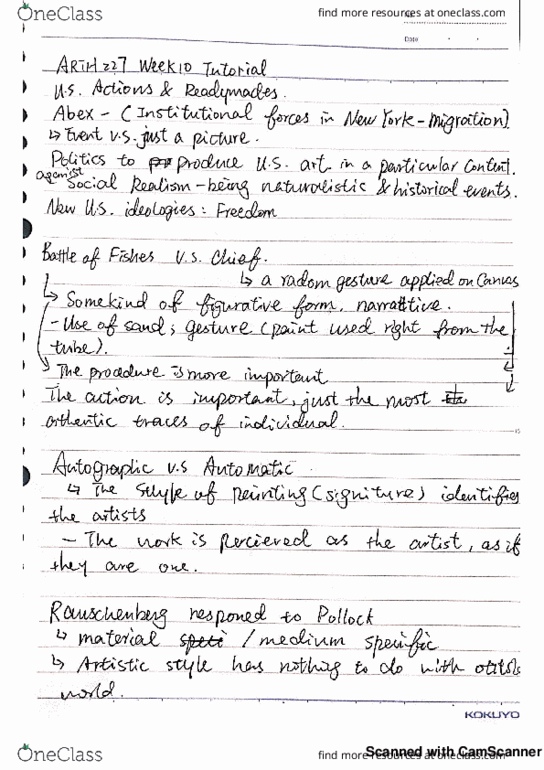 OneClass
find more resources at oneclass.com
Date
ARTH 227 Week10 Tutorial
U.S. Actions & Readymades.
Abex - (Institutional forces in New York - Migration)
↳ Event v.s. just a picture.
Politics to produce U.S. art in a particular content.
against Social Realism - being naturalistic & historical events.
New U.S. ideologies: Freedom
Battle of Fishes v.s. Chief.
↳ a radom gesture applied on Canvas
↳ Some kind of figurative form, narrative.
- Use of sand; gesture (paint used right from the
tube).
↳ The procedure is more important
The action is important, just the most
arthentic traces of individual.
Autographic v.s Automatic
↳ The style of painting (signiture) identifies
the artists
- The work is percieved as the artist, as if
they are one.
Rauschenberg responed to Pollock
↳ material / medium specific
↳ Artistic style has nothing to do with
world.
KOKUYO
OneClass
find more
Scanned with CamScanner